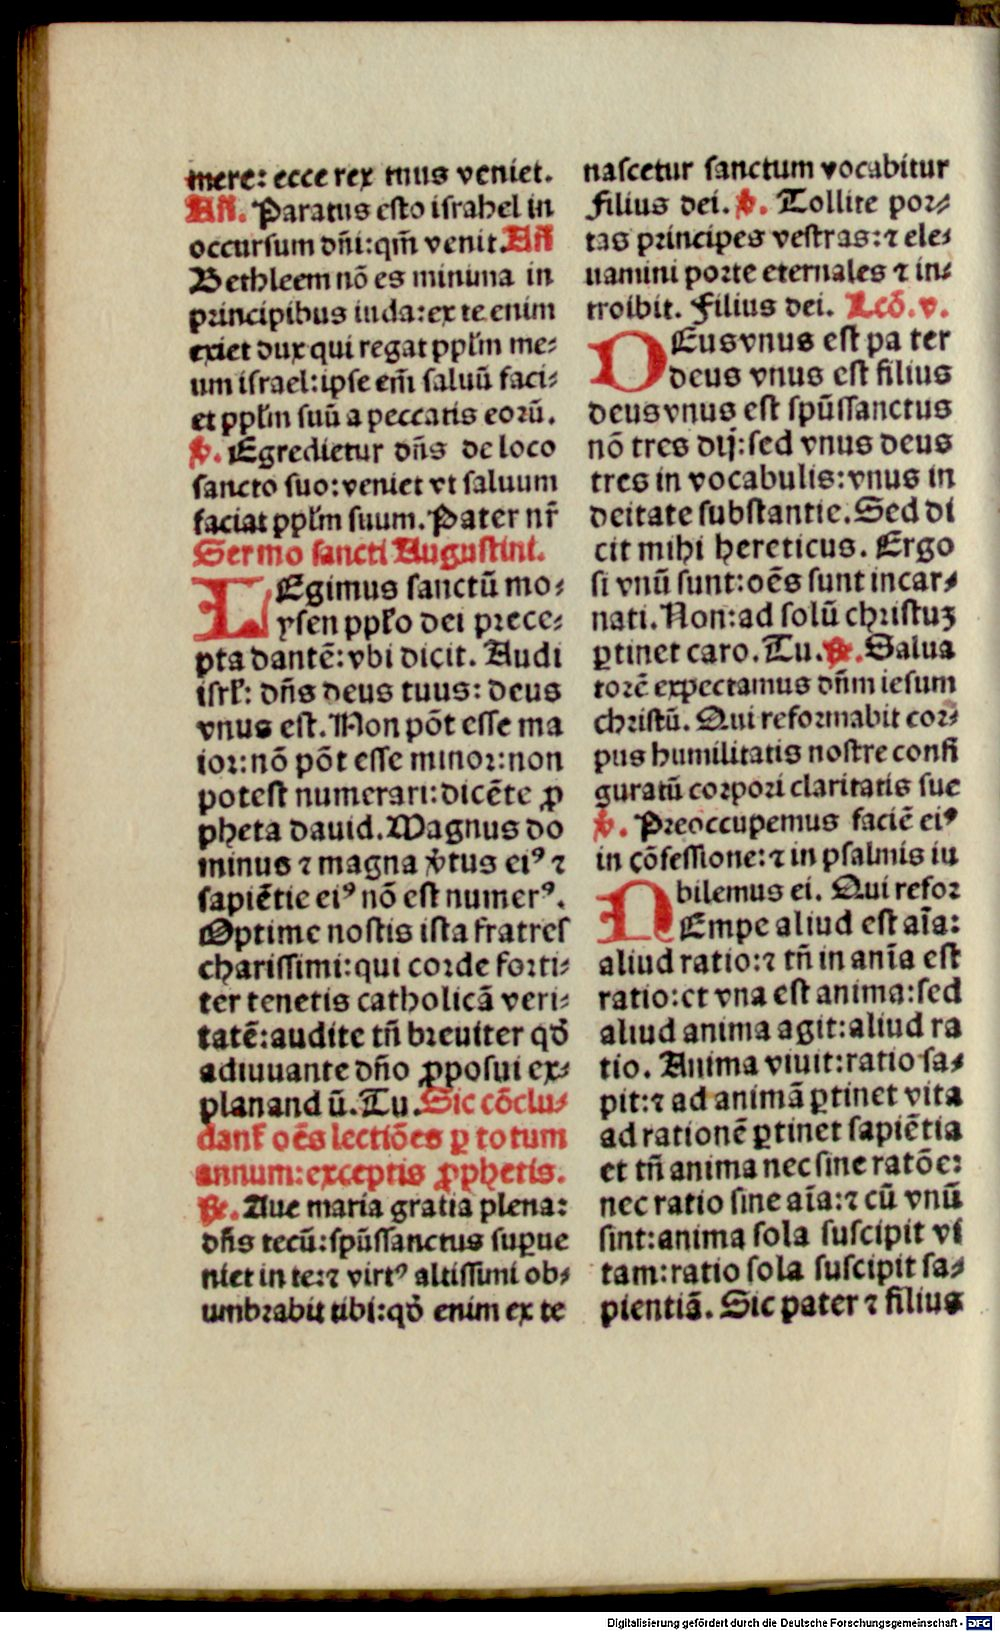 mere: ecce rex tuus veniet.
Añ. Paratus esto israhel in
occursum dñi: qm̃ venit. Añ
Bethleem nõ es minima in
principibus iuda: ex te enim
exiet dux qui regat pplm̃ me⸗
um israel: ipse em̃ saluũ faci⸗
et pplm̃ suũ a peccatis eorũ.
℣. Egredietur dñs de loco
sancto suo: veniet vt saluum
faciat pplm̃ suum. Pater nr̃
Sermo sancti Augustini.
LEgimus sanctũ mo⸗
ysen pplo dei prece⸗
pta dantẽ: vbi dicit. Audi
isrl: dñs deus tuus: deus
vnus est. Non põt esse ma
ior: nõ põt esse minor: non
potest numerari: dicẽte ꝓ
pheta dauid. Magnus do
minus ⁊ magna v̓tus eiꝰ ⁊
sapiẽtie eiꝰ nõ est numerꝰ.
Optime nostis ista fratres
charissimi: qui corde forti⸗
ter tenetis catholicã veri⸗
tatẽ: audite tñ breuiter qð
adiuuante dño ꝓposui ex⸗
planandũ. Tu. Sic cõclu⸗
dant̃ oẽs lectiões ꝑ totum
annum: exceptis ꝓphetis.
℟. Aue maria gratia plena:
dñs tecũ: spũssanctus suꝑue
niet in te: ⁊ virtꝰ altissimi ob⸗
umbrabit tibi: qð enim ex te
nascetur sanctum vocabitur
filius dei. ℣. Tollite por⸗
tas principes vestras: ⁊ ele⸗
uamini porte eternales ⁊ in⸗
troibit. Filius dei. Lcõ. v.
DEus vnus est pa ter
deus vnus est filius
deus vnus est spũssanctus
nõ tres dij: sed vnus deus
tres in vocabulis: vnus in
deitate substantie. Sed di
cit mihi hereticus. Ergo
si vnũ sunt: oẽs sunt incar⸗
nati. Non: ad solũ christuꝫ
ꝑtinet caro. Tu. ℟. Salua
torẽ expectamus dñm iesum
christũ. Qui reformabit cor⸗
pus humilitatis nostre confi
guratũ corpori claritatis sue
℣. Preoccupemus faciẽ eiꝰ
in cõfessione: ⁊ in psalmis iu
bilemus ei. Qui refor
NEmpe aliud est aĩa:
aliud ratio: ⁊ tñ in anĩa est
ratio: et vna est anima: sed
aliud anima agit: aliud ra
tio. Anima viuit: ratio sa⸗
pit: ⁊ ad animã ꝑtinet vita
ad rationẽ ꝑtinet sapiẽtia
et tñ anima nec sine ratõe:
nec ratio sine aĩa: ⁊ cũ vnũ
sint: anima sola suscipit vi
tam: ratio sola suscipit sa⸗
pientiã. Sic pater ⁊ filius
Digitalisierung gefördert durch die Deutsche Forschungsgemeinschaft - DFG